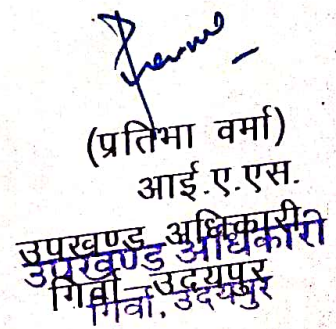 (प्रतिभा वर्मा)
आई.ए.एस.
उपखण्ड अधिकारी
उपखण्ड अधिकारी
गिर्वा-उदयपुर
गिर्वा, उदयपुर